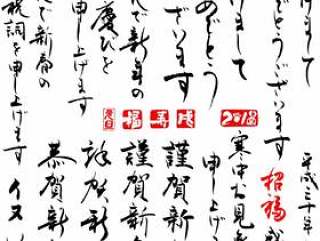 けまして
でとうございます
けまして
めでとう
ざいます
んで新年の
慶びを
申し上げます
んで新春の
祝詞を申し上げます
福
寿
戌
2018
平成三十年
招福
寒中お見
申し上げ
謹賀新
謹賀新
賀新
恭賀新